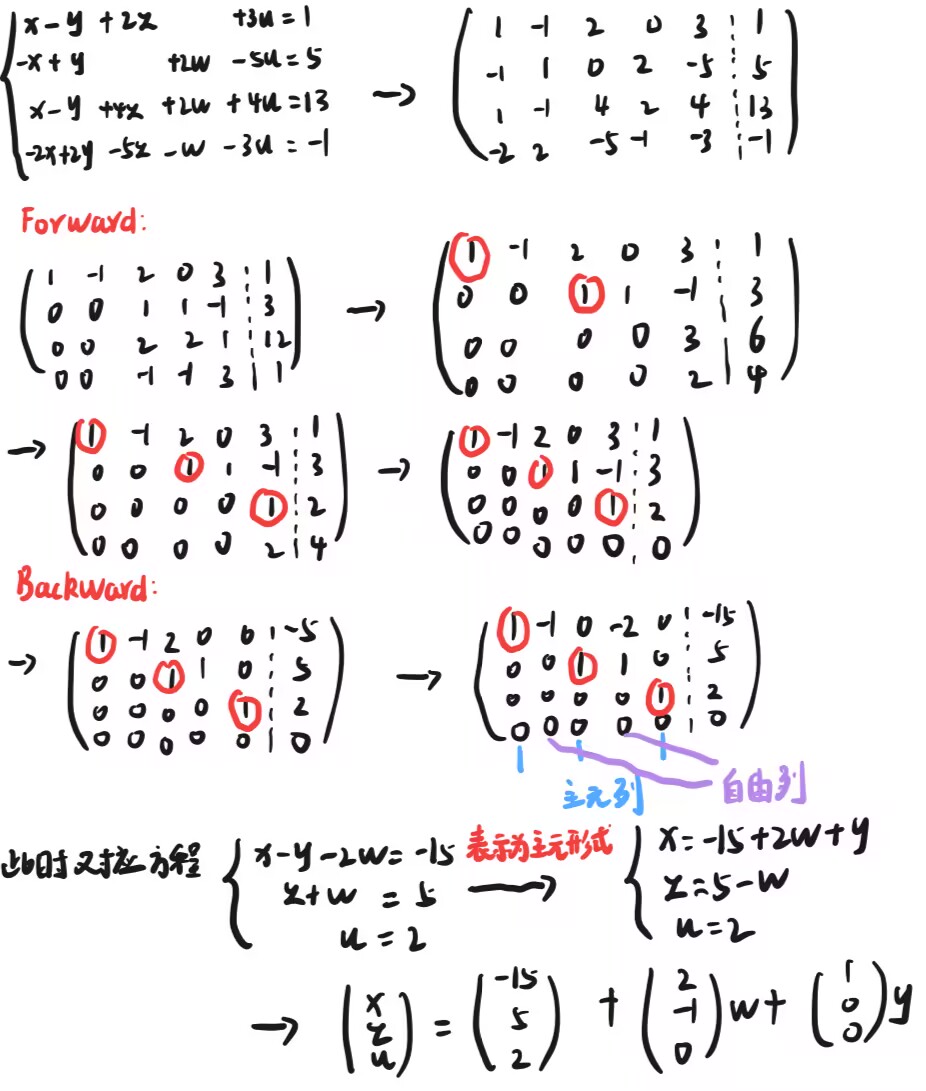 x-y+2z +3u=1
-x+y +2w -5u=5
x-y+4z+2w+4u=13
-2x+2y-5z-w-3u=-1
→
1 -1 2 0 3 1
-1 1 0 2 -5 5
1 -1 4 2 4 13
-2 2 -5 -1 -3 -1
Forward:
1 -1 2 0 3 1
0 0 1 1 -1 3
0 0 2 2 1 12
0 0 -1 -1 3 1
→
1 -1 2 0 3 1
0 0 1 1 -1 3
0 0 0 0 3 6
0 0 0 0 2 4
→
1 -1 2 0 3 1
0 0 1 1 -1 3
0 0 0 0 1 2
0 0 0 0 2 4
→
1 -1 2 0 3 1
0 0 1 1 -1 3
0 0 0 0 1 2
0 0 0 0 0 0
Backward:
→
1 -1 2 0 0 -5
0 0 1 1 0 5
0 0 0 0 1 2
0 0 0 0 0 0
→
1 -1 0 -2 0 -15
0 0 1 1 0 5
0 0 0 0 1 2
0 0 0 0 0 0
主元列 自由列
此时对应方程
x-y-2w=-15
z+w=5
u=2
表示为主元形式
→
x=-15+2w+y
z=5-w
u=2
→
x
z
u
=
-15
5
2
+
2
-1
0
w+
1
0
0
y